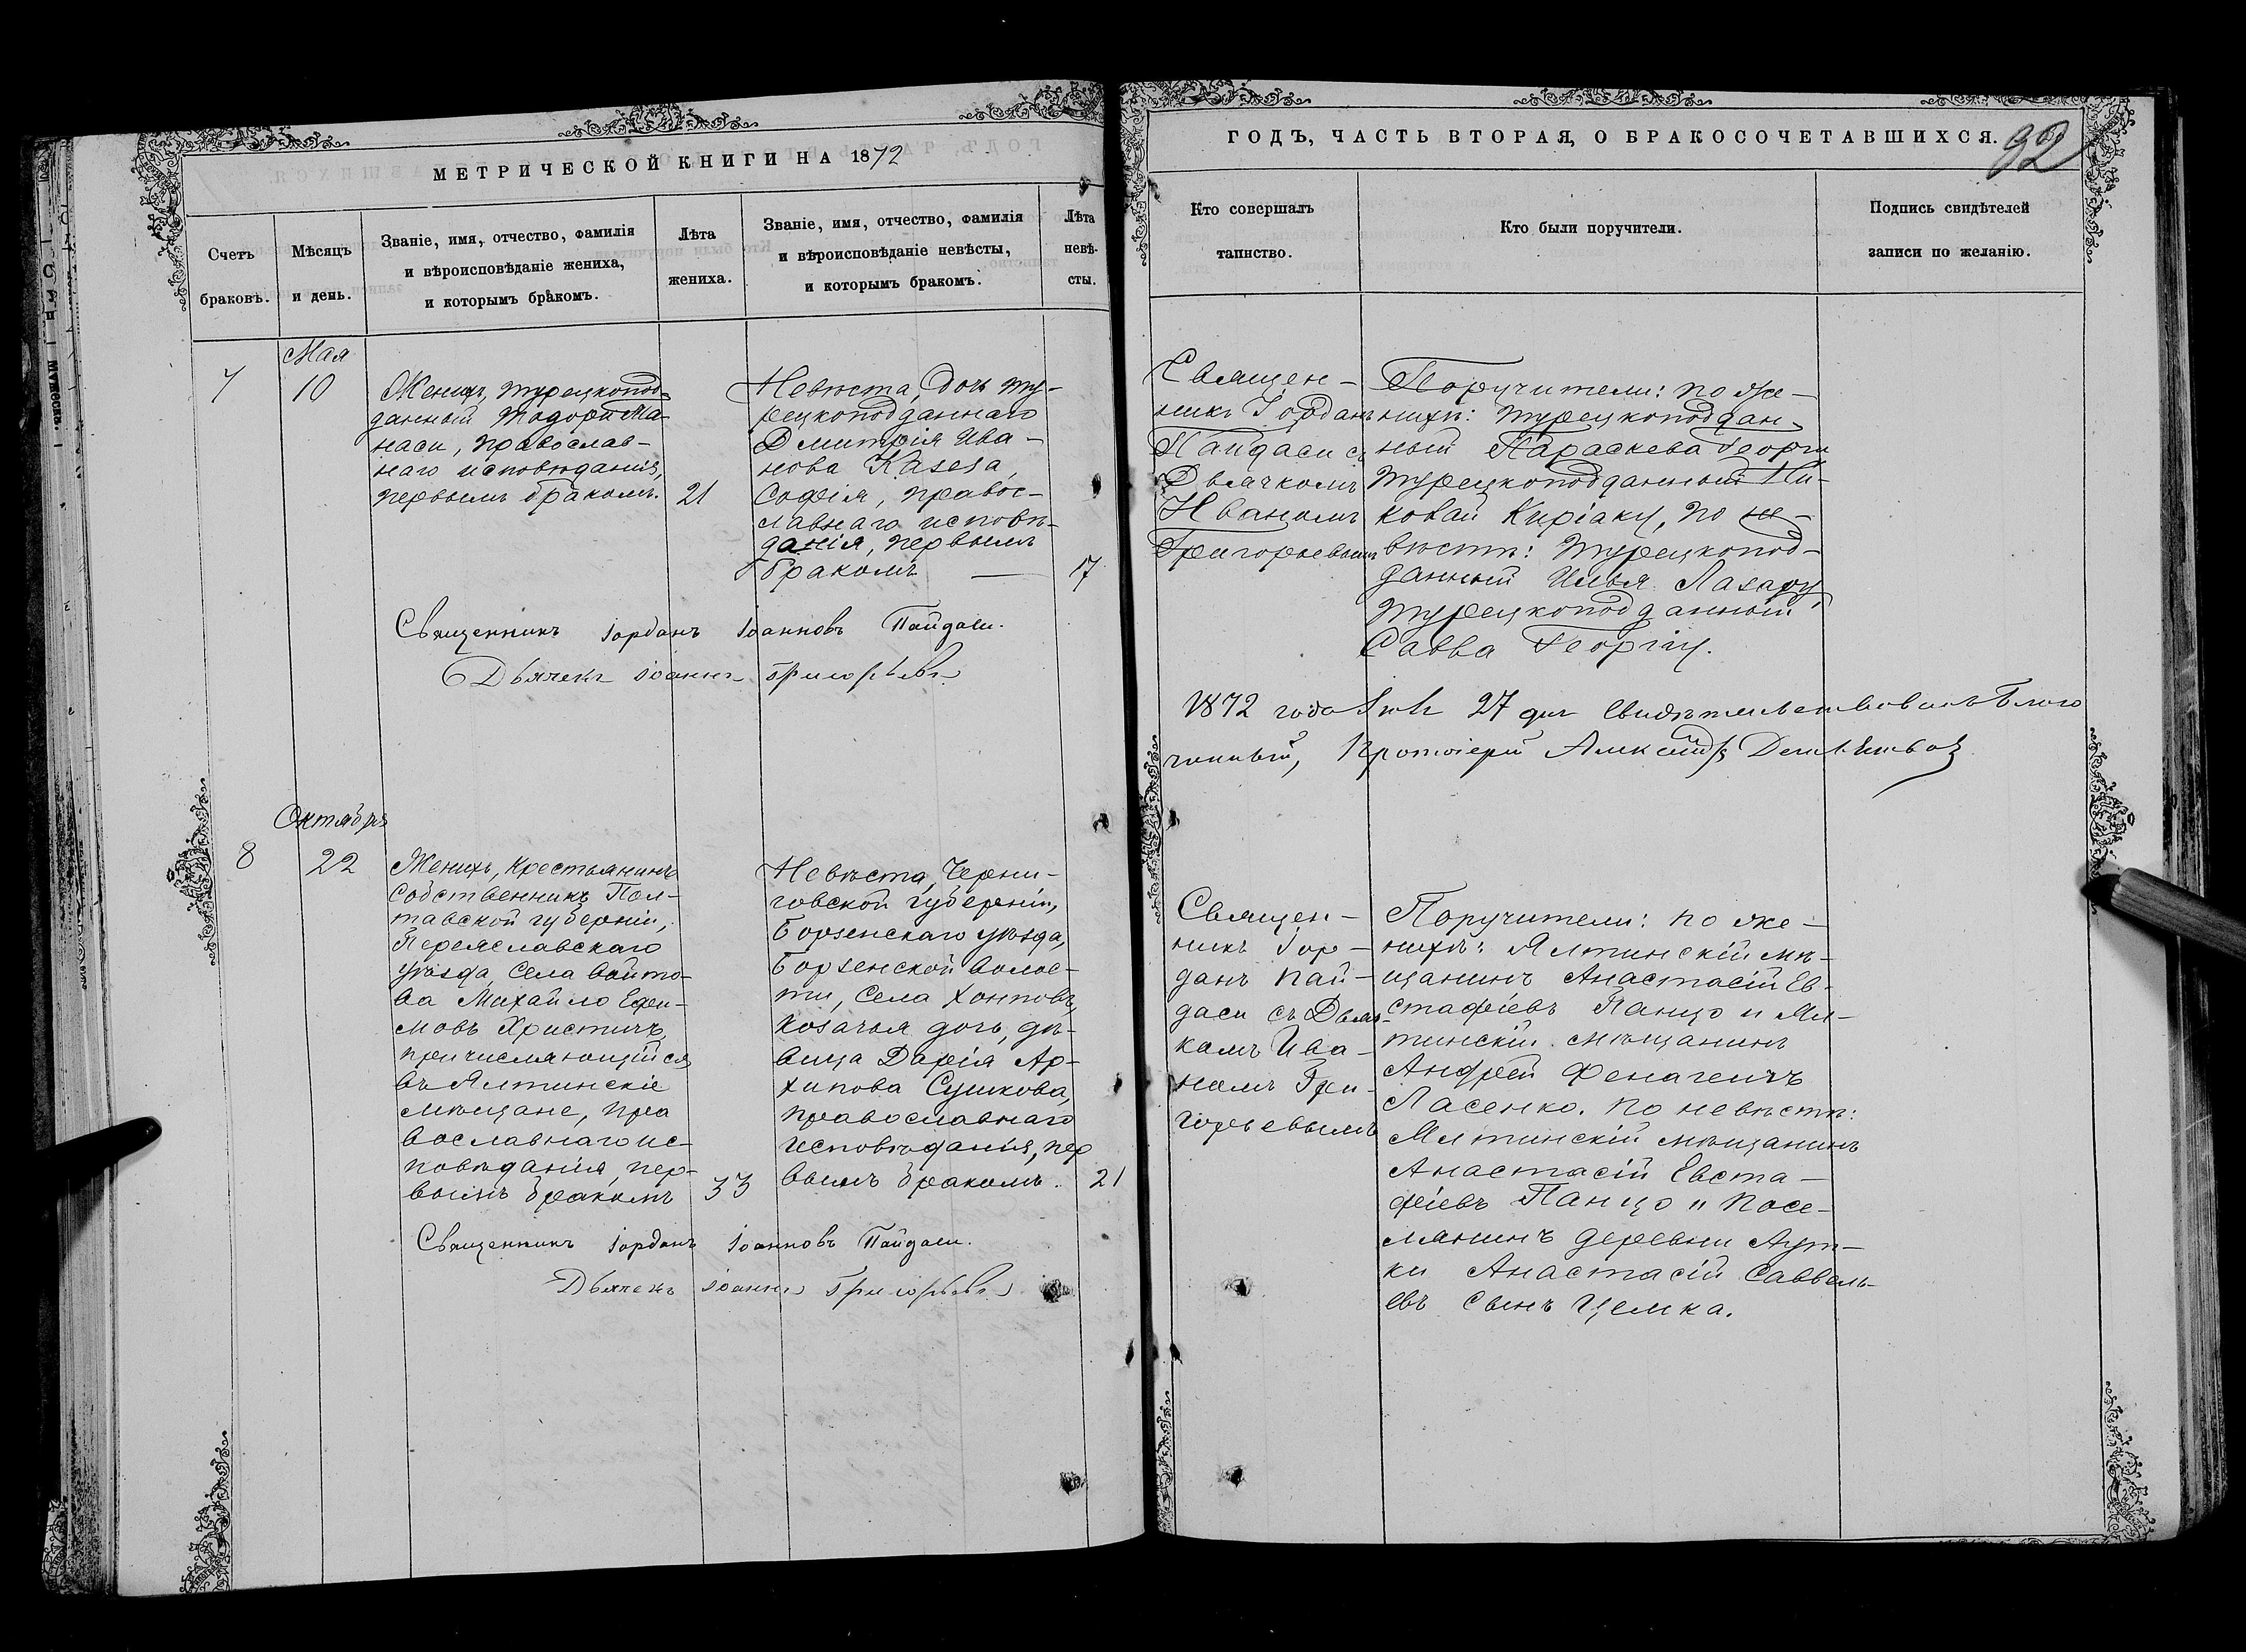 МЕТРИЧЕСКОЙ КНИГИ НА 1872
Счетъ
браковъ.
Мѣсяцъ
и день.
Званіе, имя, отчество, фамилія
и вѣроисповѣданіе жениха,
и которымъ бракомъ.
Лѣта
жениха.
Званіе, имя, отчество, фамилія
и вѣроисповѣданіе невѣсты,
и которымъ бракомъ.
Лѣта
невѣ-
сты.
Мая
7
10
Женихъ, турецкопод-
данный Тодори Ма-
наси, православ-
наго исповѣданія,
первымъ бракомъ.
21
Невѣста, дочь ту-
рецкоподданнаго
Дмитрія Ива-
нова Казеза,
Софія, правос-
лавнаго исповѣ-
данія, первымъ
бракомъ —
17
Священникъ Іорданъ Іоанновъ Пайдаси.
Дьячекъ Іоаннъ Григорьевъ
Октября
8
22
Женихъ, крестьянинъ
собственникъ Пол-
тавской губерніи,
Переяславскаго
уѣзда, села Войто-
ва Михайло Ефи-
мовъ Христичъ,
причисляющійся
въ Ялтинскіе
мѣщане, пра
вославнаго ис-
повѣданія, пер-
вымъ бракомъ
33
Невѣста, Черни-
говской губерніи,
Борзенскаго уѣзда,
Борзенской волос-
ти, села
козачья дочь, дѣ-
вица Дарія Ар-
хипова Сушкова,
православнаго
исповѣданія, пер
вымъ бракомъ.
21
Священникъ Іорданъ Іоанновъ Пайдаси.
Дьячекъ Іоаннъ Григорьевъ
ГОДЪ, ЧАСТЬ ВТОРАЯ, О БРАКОСОЧЕТАВШИХСЯ.
92
Кто совершалъ
таинство.
Кто были поручители.
Подпись свидѣтелей
записи по желанію.
Священ-
никъ Іорданъ
Пайдаси съ
Дьячкомъ
Иваномъ
Григорьевымъ
Поручители: по же-
нихѣ: турецкоподдан-
ный Параскева Георги
турецкоподданный Ни-
колай Киріаку, по не-
вѣстѣ: турецкопод-
данный Илья Лазару,
турецкоподданный
Савва Георгіу.
1872 года 27 дня свидѣтельствовалъ Благо
чинный, Протоіерей
Священ-
никъ Іор-
данъ Пай-
даси съ Дьяч-
комъ Ива-
номъ Гри-
горьевымъ
Поручители: по же-
нихѣ: Ялтинскій мѣ-
щанинъ Анастасій Ев-
стафіевъ Панцо и Ял-
тинскій мѣщанинъ
Андрей
Ласенко. по невѣстѣ:
Ялтинскій мѣщанинъ
Анастасій Евста-
фіевъ Панцо и посе-
лянинъ деревни Аут-
ки Анастасій Саввель-
евъ сынъ Целика.